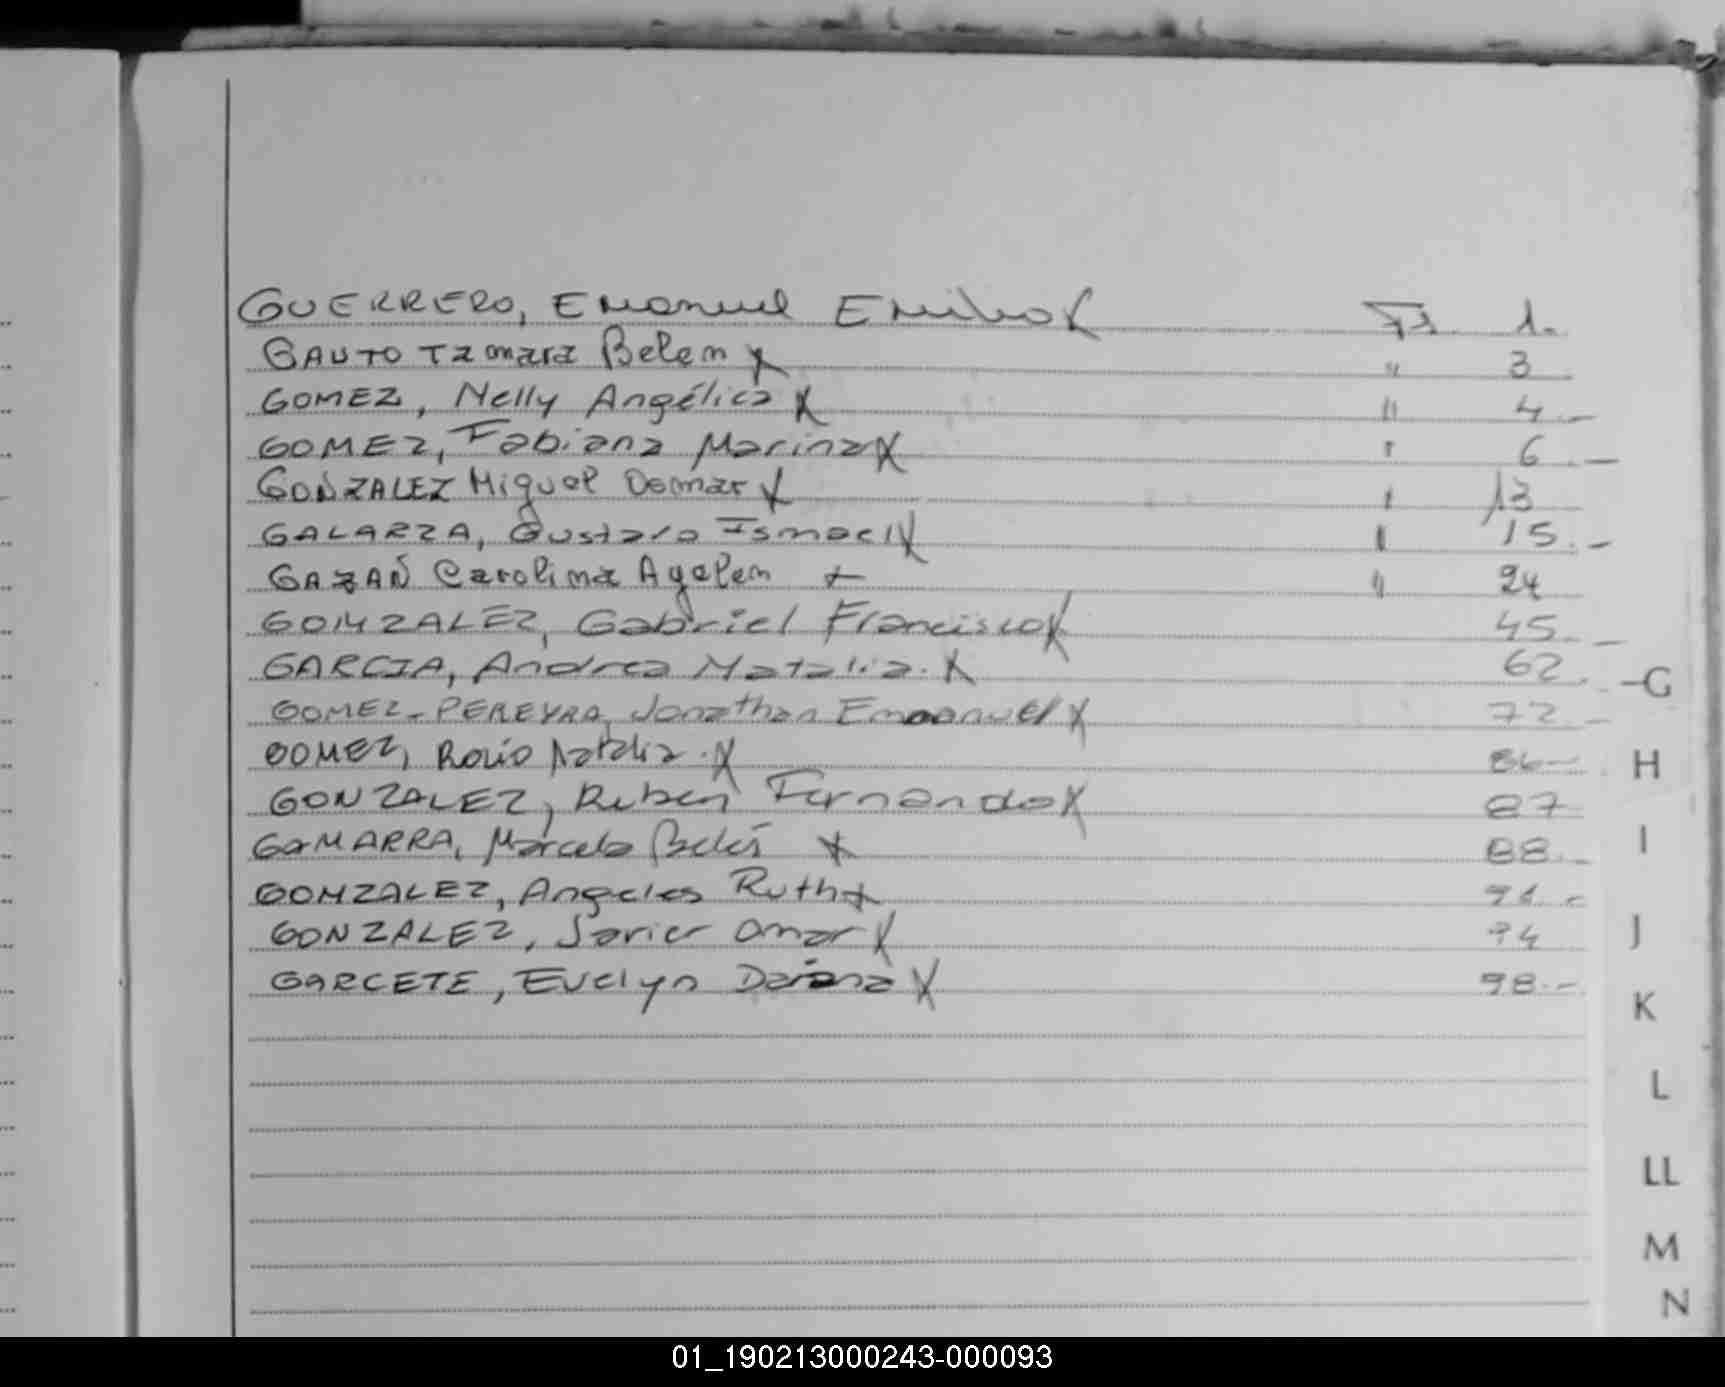 GUERRERO, Emanuel Emilio X Fs 1.
GAUTO Tamara Belem X " 3
GOMEZ, Nelly Angélica X " 4.-
GOMEZ, Fabiana Marina X " 6.-
GONZALEZ Miguel X " 13
GALARZA, Gustavo Ismael X " 15.-
GAZAÑ Carolina Ayelem + " 24
GONZALEZ, Gabriel Francisco X 45.-
GARCIA, Andrea Natalia. X 62.-
GOMEZ-PEREYRA, Jonathan Emmanuel X 72.-
GOMEZ, Rocío Natalia. X 86-
GONZALEZ, Ruben Fernando X 87
GAMARRA, Marcela Belén X 88.-
GONZALEZ, Angeles Ruth X 91.-
GONZALEZ, Javier Omar X 94
GARCETE, Evelyn Daiana X 98.-
-G
H
I
J
K
L
LL
M
N
01_190213000243-000093